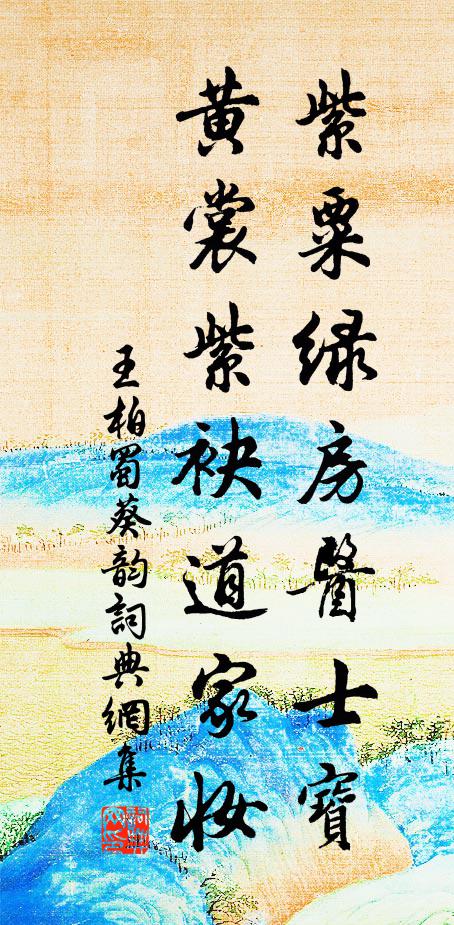 紫粟绿房醫士寶
黄裳紫袂道家妝
王柏蜀葵韵詞典網集